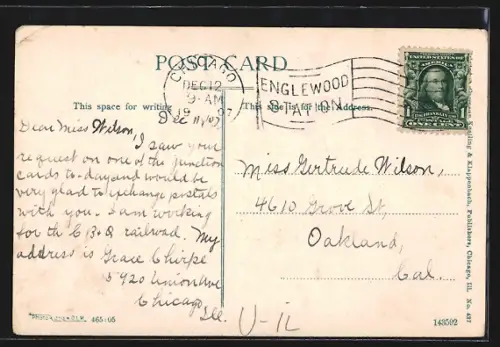 POST CARD
CHICAGO
DEC 12
9-AM
1907
ENGLEWOOD
STATION
UNITED STATES OF AMERICA
ONE CENT
This space for writing
This space is for the address.
Dec 11/07
Dear Miss Wilson,
I saw your
request on one of the Junction
cards to-day and would be
very glad to exchange postals
with you. I am working
for the C B & Q railroad. My
address is Grace Chirpe
5920 Union Ave
Chicago,
Ill.
Miss Gertrude Wilson,
4610 Grove St,
Oakland,
Cal.
U-IL
& Klappenbach, Publishers, Chicago, Ill. No. 437
465:05
143592